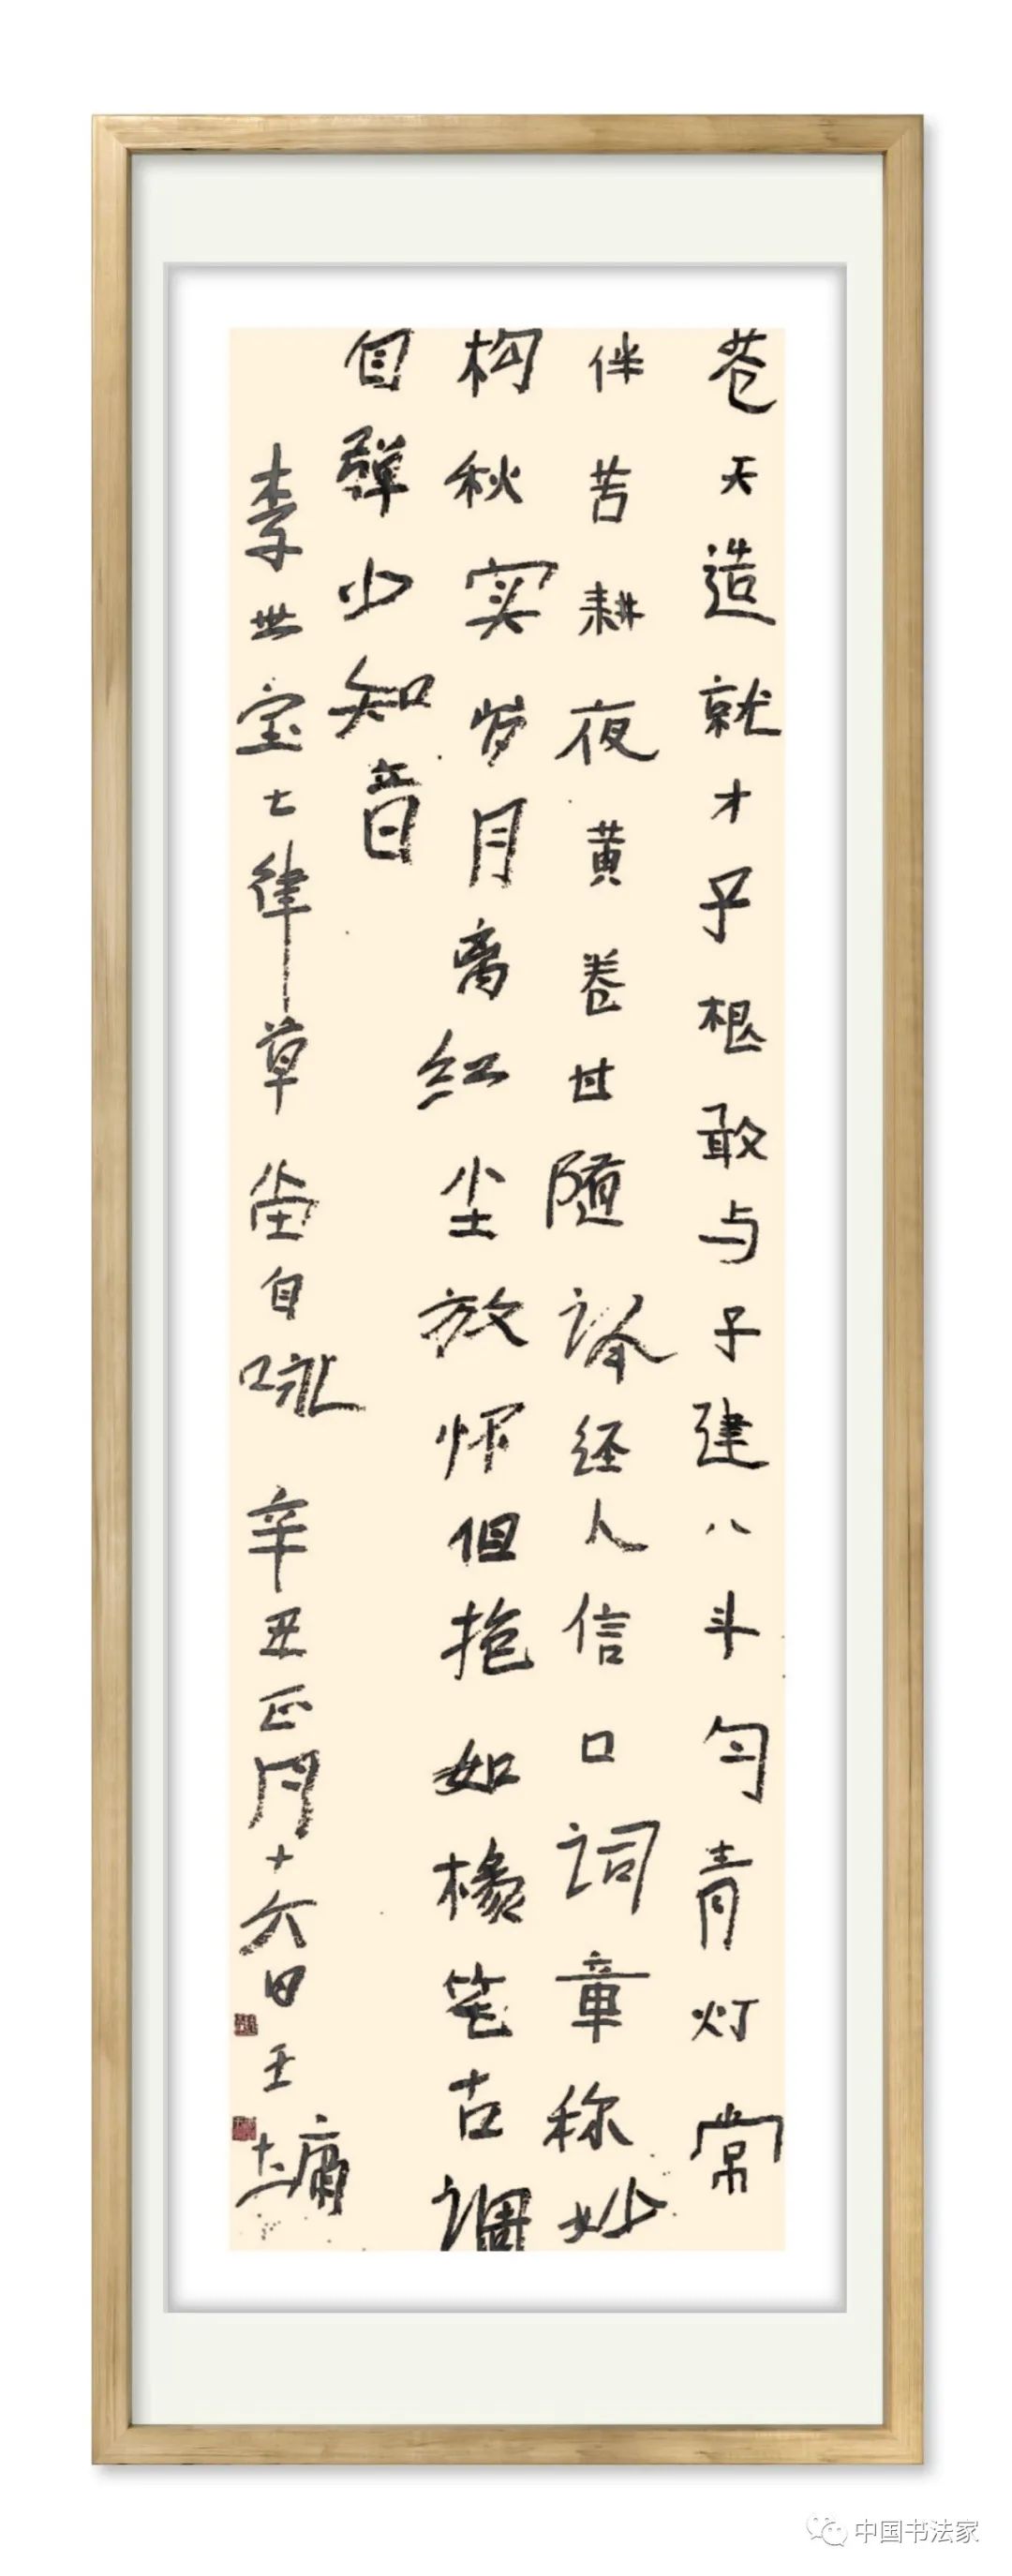 苍天造就才子根敢与子建八斗匀青灯常
伴苦耕夜黄卷甘随诵经人信口词章称妙
构秋实岁月离红尘放怀但抱如椽笔古调
自弹少知音
李世宝七律草堂自咏 辛丑正月十六日王墉
中国书法家